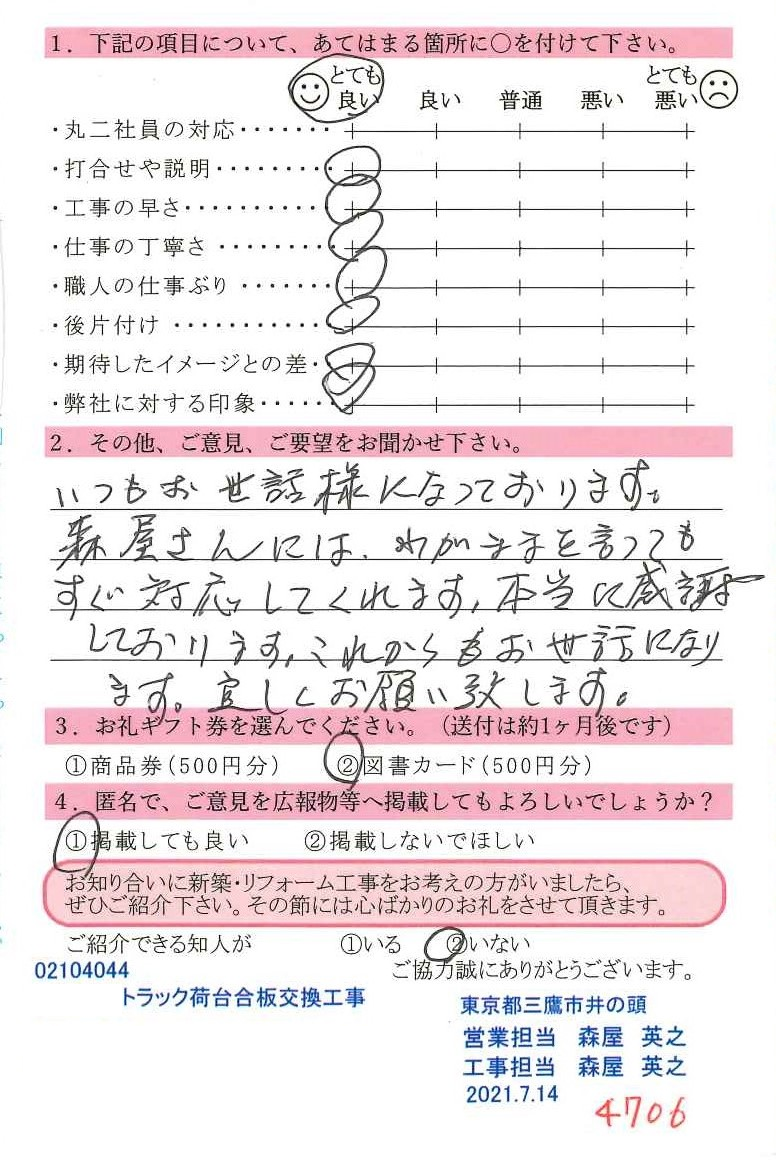 1．下記の項目について、あてはまる箇所に○を付けて下さい。
とても良い 良い 普通 悪い とても悪い
・丸二社員の対応・・・・・・・
・打合せや説明・・・・・・・・・
・工事の早さ・・・・・・・・・・・
・仕事の丁寧さ・・・・・・・・・
・職人の仕事ぶり・・・・・・・
・後片付け・・・・・・・・・・・・
・期待したイメージとの差・・
・弊社に対する印象・・・・・・
2．その他、ご意見、ご要望をお聞かせ下さい。
いつもお世話様になっております。
森屋さんには、わがままを言っても
すぐ対応してくれます。本当に感謝
しております。これからもお世話になり
ます。宜しくお願い致します。
3．お礼ギフト券を選んでください。（送付は約1ヶ月後です）
①商品券（500円分） ②図書カード（500円分）
4．匿名で、ご意見を広報物等へ掲載してもよろしいでしょうか？
①掲載しても良い ②掲載しないでほしい
お知り合いに新築・リフォーム工事をお考えの方がいましたら、
ぜひご紹介下さい。その節には心ばかりのお礼をさせて頂きます。
ご紹介できる知人が ①いる ②いない
ご協力誠にありがとうございます。
02104044
トラック荷台合板交換工事
東京都三鷹市井の頭
営業担当 森屋 英之
工事担当 森屋 英之
2021.7.14
4706